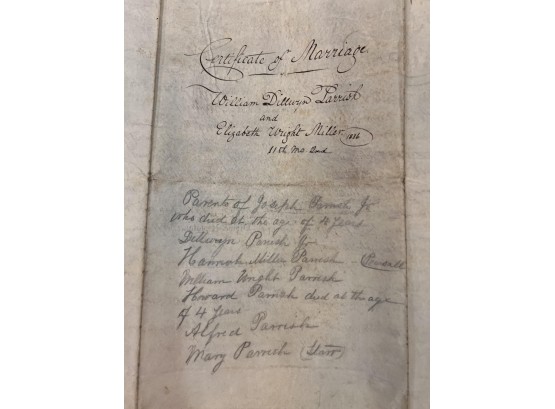 Certificate of Marriage.
William Dillwyn Parrish
and
Elizabeth Wright Miller
11th Mo 2nd
Parents of Joseph Parrish Jr
who died at the age of 4 years
Dillwyn Parrish Jr
Hannah Miller Parrish
William Wright Parrish
Howard Parrish died at the age
of 4 years
Alfred Parrish
Mary Parrish